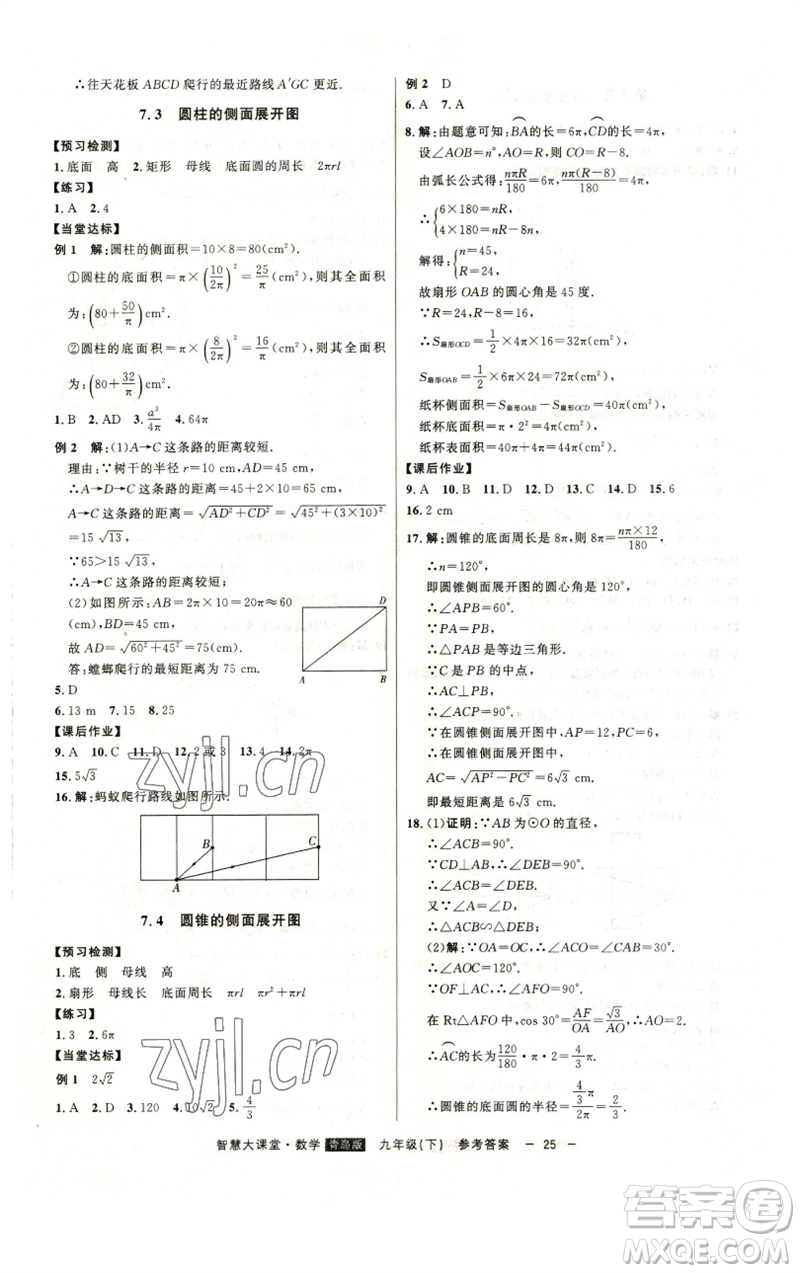 ∴往天花板 ABCD 爬行的最近路线 A′GC 更近.
7.3 圆柱的侧面展开图
【预习检测】
1.底面 高 2.矩形 母线 底面圆的周长 2πrl
【练习】
1.A 2.4
【当堂达标】
例 1 解:圆柱的侧面积=10×8=80(cm²).
①圆柱的底面积=π×(10/2π)²=25/π(cm²),则其全面积
为:(80+50/π)cm².
②圆柱的底面积=π×(8/2π)²=16/π(cm²),则其全面积
为:(80+32/π)cm².
1.B 2.AD 3.a³/4π 4.64π
例 2 解:(1)A→C 这条路的距离较短.
理由:∵树干的半径 r=10 cm,AD=45 cm,
∴A→D→C 这条路的距离=45+2×10=65(cm),
A→C 这条路的距离=√(AD²+CD²)=√(45²+(3×10)²)
=15√13,
∵65>15√13,
∴A→C 这条路的距离较短;
(2)如图所示:AB=2π×10=20π≈60
(cm),BD=45 cm,
故 AD=√(60²+45²)=75(cm).
答:螳螂爬行的最短距离为 75 cm.
D
A
B
5.D
6.13 m 7.15 8.25
【课后作业】
9.A 10.C 11.D 12.2或8 13.4 14.2π
15.5√3
16.解:蚂蚁爬行路线如图所示.
B
C
A
7.4 圆锥的侧面展开图
【预习检测】
1.底 侧 母线 高
2.扇形 母线长 底面周长 πrl πrl+πr²
【练习】
1.3 2.6π
【当堂达标】
例 1 2√2
1.A 2.D 3.120 4.10√2 5.4/3
例 2 D
6.A 7.A
8.解:由题意可知:BA⌒的长=6π,CD⌒的长=4π,
设∠AOB=n°,AO=R,则 CO=R−8.
由弧长公式得:nπR/180=6π,nπ(R−8)/180=4π,
∴{6×180=nR,
4×180=nR−8n,
解得:{n=45,
R=24,
故扇形 OAB 的圆心角是 45 度.
∵R=24,R−8=16,
∴S扇形OCD=1/2×4π×16=32π(cm²),
S扇形OAB=1/2×6π×24=72π(cm²),
纸杯侧面积=S扇形OAB−S扇形OCD=40π(cm²),
纸杯底面积=π·2²=4π(cm²),
纸杯表面积=40π+4π=44π(cm²).
【课后作业】
9.A 10.B 11.D 12.D 13.C 14.D 15.6
16.2 cm
17.解:圆锥的底面周长是 8π,则 8π=nπ×12/180,
∴n=120°,
即圆锥侧面展开图的圆心角是 120°,
∴∠APB=60°.
∵PA=PB,
∴△PAB 是等边三角形.
∵C 是 PB 的中点,
∴AC⊥PB,
∴∠ACP=90°.
∵在圆锥侧面展开图中,AP=12,PC=6,
∴在圆锥侧面展开图中,
AC=√(AP²−PC²)=6√3(cm).
即最短距离是 6√3 cm.
18.(1)证明:∵AB 为⊙O 的直径,
∴∠ACB=90°.
∵CD⊥AB,∴∠DEB=90°,
∴∠ACB=∠DEB.
又∵∠A=∠D,
∴△ACB∽△DEB;
(2)解:∵OA=OC,∴∠ACO=∠CAB=30°.
∴∠AOC=120°.
∵OF⊥AC,∴∠AFO=90°.
在 Rt△AFO 中,cos 30°=AF/OA=√3/OA,∴AO=2.
∴AC⌒的长为120/180·π·2=4/3π.
∴圆锥的底面圆的半径=4/3π/2π=2/3.
智慧大课堂·数学 青岛版 九年级(下) 参考答案 — 25 —
zyjl.cn
zyjl.cn
答案圈
MXQE.COM